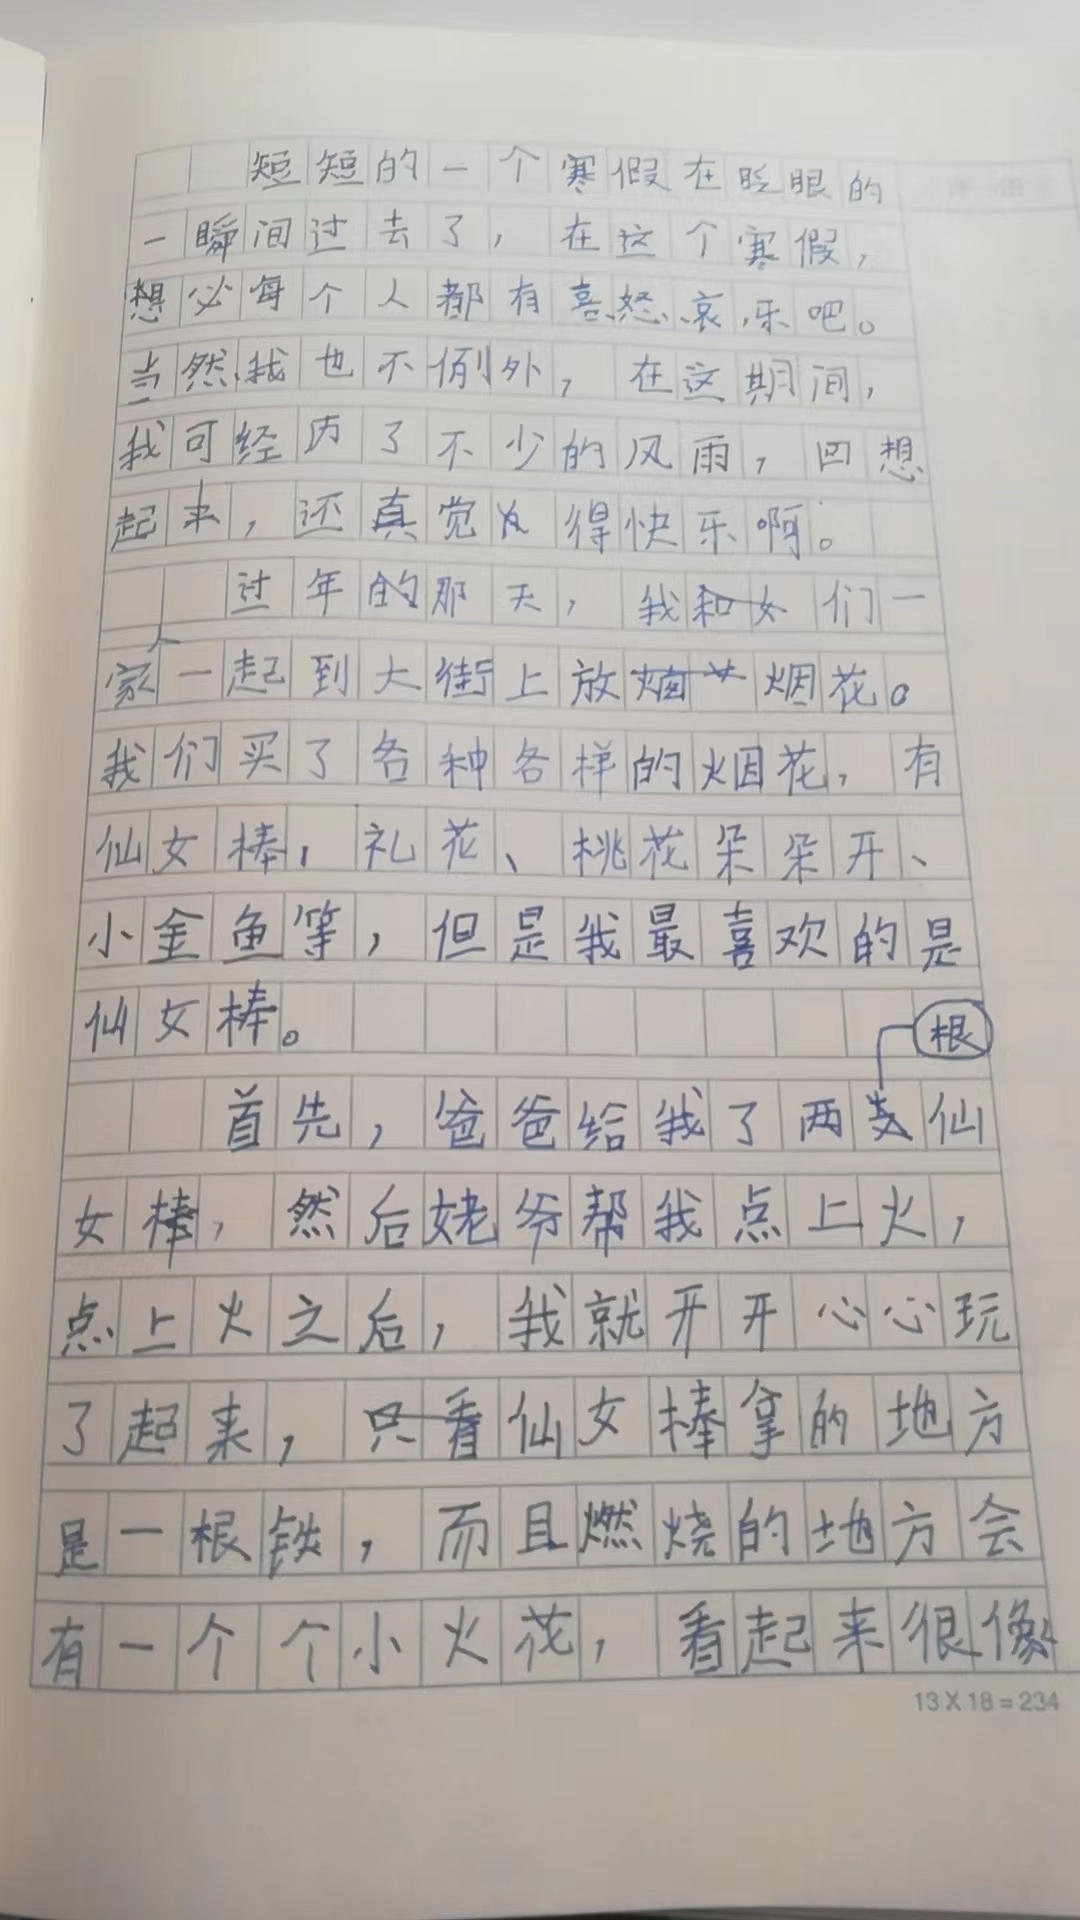 短短的一个寒假在眨眼的
一瞬间过去了，在这个寒假，
想必每个人都有喜、怒、哀、乐吧。
当然、我也不例外，在这期间，
我可经历了不少的风雨，回想
起来，还真觉得快乐啊。
过年的那天，我们一
家人一起到大街上放烟花。
我们买了各种各样的烟花，有
仙女棒，礼花、桃花朵朵开、
小金鱼等，但是我最喜欢的是
仙女棒。
首先，爸爸给我了两根仙
女棒，然后姥爷帮我点上火，
点上火之后，我就开开心心玩
了起来，仙女棒拿的地方
是一根铁，而且燃烧的地方会
有一个个小火花，看起来很像
13X18=234